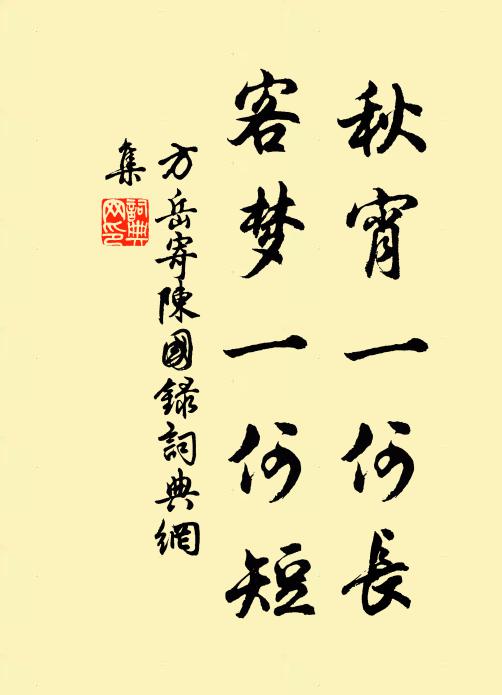 秋宵一何长
客梦一何短
方岳寄陳國録詞典網
集
詞典網印